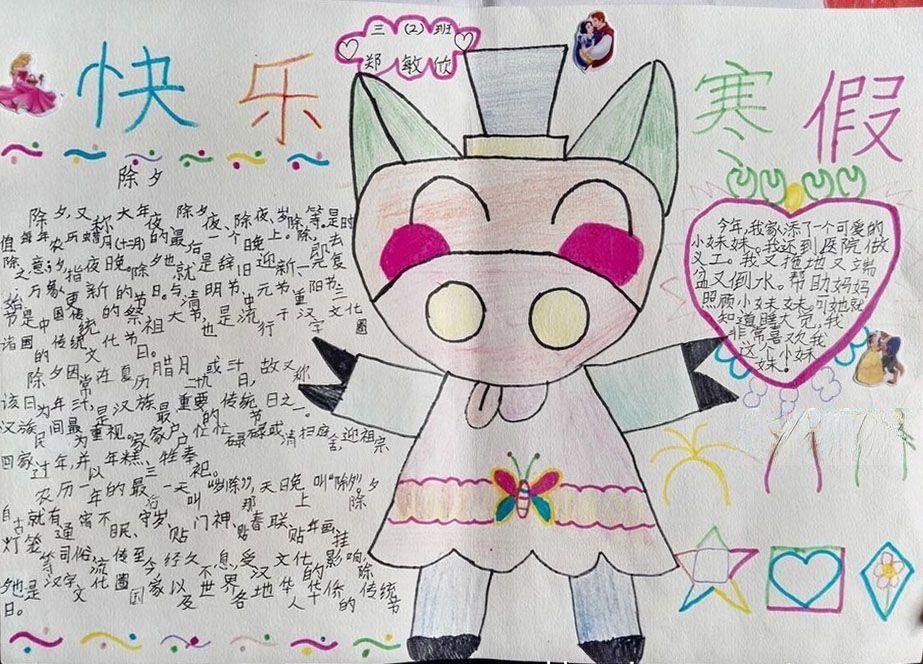 三（2）班
郑敏欣
快乐寒假
除夕
除夕，又称大年夜、除夕夜、除夜、岁除等，是时
值每年农历腊月（十二月）的最后一个晚上。除，即去
除之意；夕，指夜晚。除夕也就是辞旧迎新、一元复
始、万象更新的节日。与清明节、中元节、重阳节三
节是中国传统的祭祖大节，也是流行于汉字文化圈
诸国的传统文化节日。
除夕因常在夏历腊月廿九或三十日，故又称
该日为年三十，是汉族最重要的传统节日之一。
汉族民间最为重视。家家户户忙忙碌碌或清扫庭舍，迎祖宗
回家过年，并以年糕、三牲奉祀。
农历一年的最后一天叫“岁除”，那天晚上叫“除夕”。除夕
自古就有通宵不眠、守岁、贴门神、贴春联、贴年画、挂
灯笼等司俗，流传至今，经久不息。受汉文化的影响，除
夕也是汉字文化圈国家以及世界各地华人华侨的传统节
日。
今年，我家添了一个可爱的
小妹妹。我还到医院做
义工。我又拖地又端
盆又倒水。帮助妈妈
照顾小妹妹。可她就
知道睡大觉，我
非常喜欢我
这个小妹
妹！